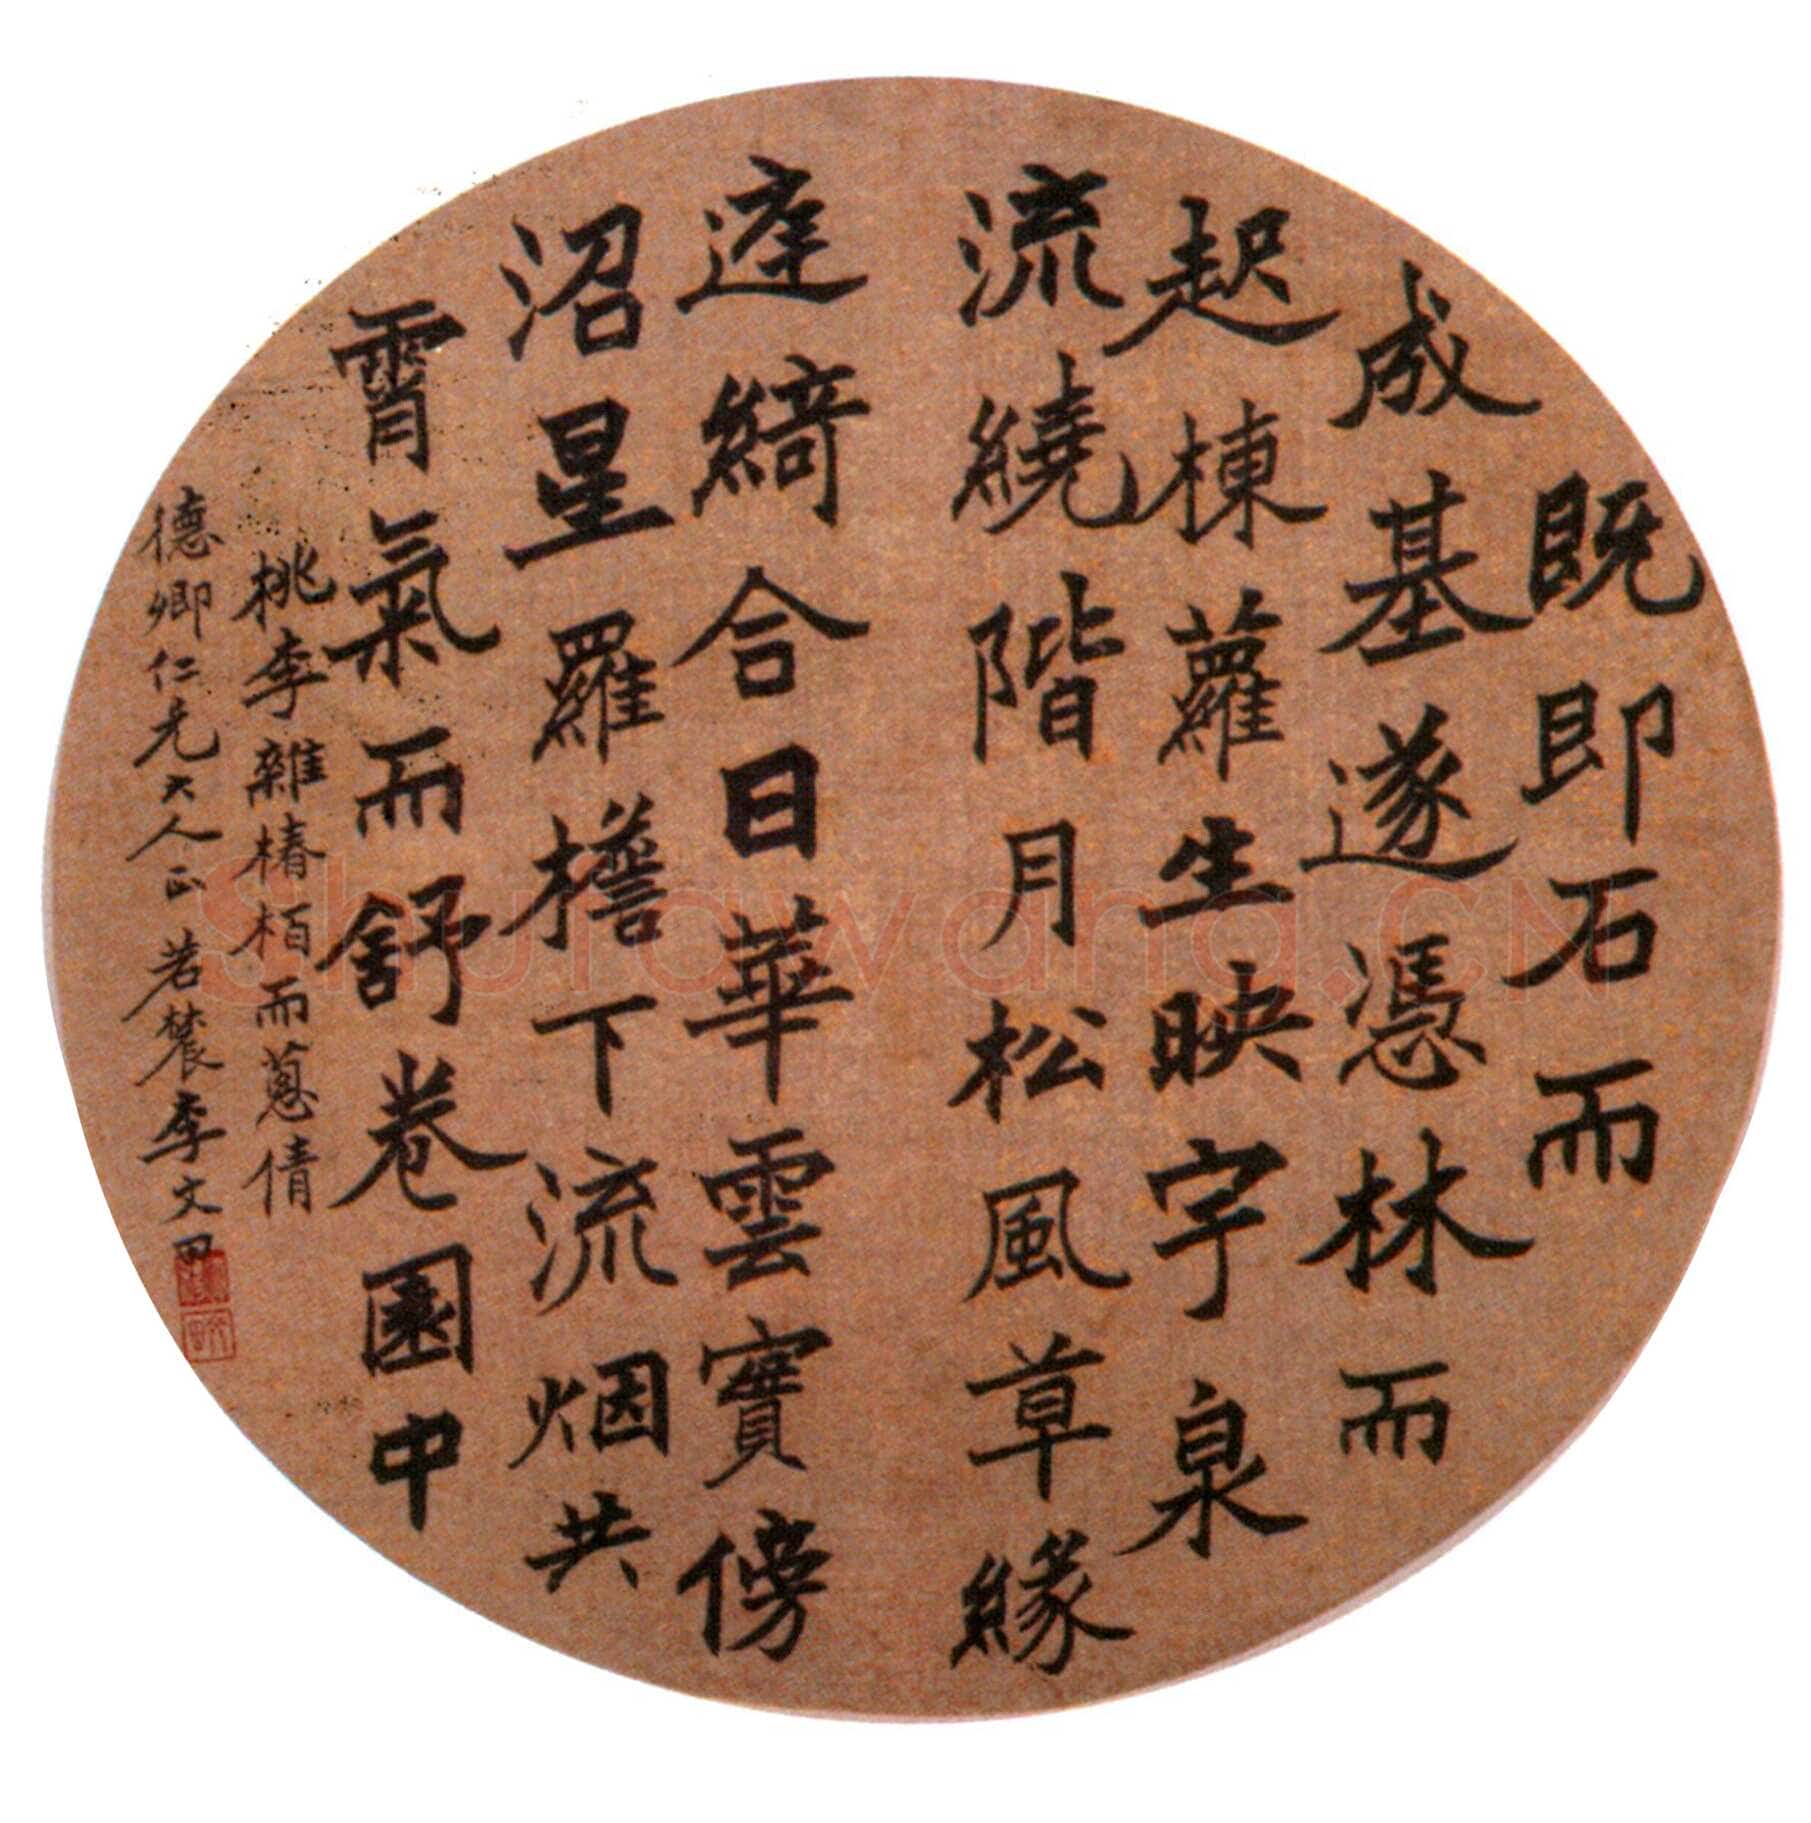 既即石而
成基遂憑林而
起棟蘿生映宇泉
流繞階月松風草緣
庭綺合日華雲實傍
沼星羅檐下流烟共
霄氣而舒卷園中
桃李雜椿栢而蔥倩
德卿仁兄大人正 若農李文田
Shufawang.CN